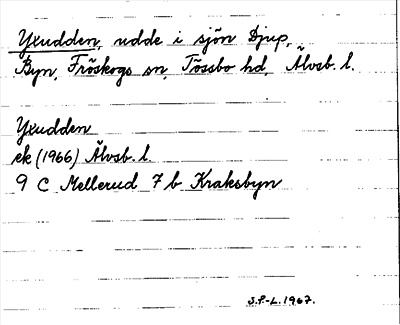 Yxudden, udde i sjön Djup,
Byn, Fröskogs sn, Tössbo hd, Älvsb. l.
Yxudden
ek (1966) Älvsb. l.
9 C Mellerud 7 b Kraksbyn
S.P-L. 1967.